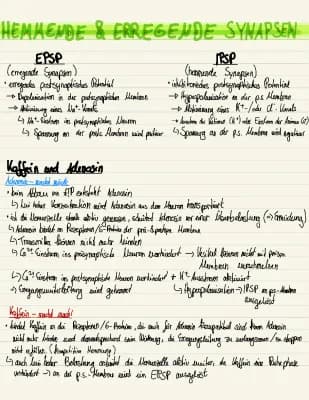 HEMMENDE & ERREGENDE SYNAPSEN
EPSP
(erregende Synapsen)
• erregendes postsynaptisches Potential
→ Depolarisation in der postsynaptischen Membran
→ Aktivierung eines Na⁺-Kanals
↳ Na⁺-Einstrom ins postsynaptische Neuron
↳ Spannung an der posts. Membran wird positiver
IPSP
(hemmende Synapsen)
• inhibitorisches postsynaptisches Potential
→ Hyperpolarisation an der p.s. Membran
→ Aktivierung eines K⁺-/ oder Cl⁻-Kanals
→ Ausstrom der Kationen (K⁺) oder Einstrom der Anionen (Cl⁻)
↳ Spannung an der p.s. Membran wird negativer
Koffein und Adenosin
Adenosin - macht müde
• beim Abbau von ATP entsteht Adenosin
↳ bei hoher Konzentration wird Adenosin aus dem Neuron transportiert
• ist die Nervenzelle stark aktiv gewesen, schützt Adenosin vor einer Überarbeitung (→ Ermüdung)
↳ Adenosin bindet an Rezeptoren/G-Proteine der prä-synapt. Membran
↳ Transmitter können nicht mehr binden
↳ Ca²⁺-Einstrom ins präsynaptische Neuron verhindert → Vesikel können nicht mit präsyn. Membran verschmelzen
↳ Ca²⁺-Einstrom ins postsynaptische Neuron verhindert + K⁺-Ausstrom aktiviert
↳ Erregungsweiterleitung wird gehemmt
↳ Hyperpolarisation → IPSP an ps-Membran ausgelöst
Koffein - macht wach!
• bindet Koffein an die Rezeptoren/G-Proteine, die auch für Adenosin
nicht mehr binden und dementsprechend sein Wirkung, die Erregungsleitung zu verlangsamen/zu stoppen
nicht erfüllen. (Kompetitive Hemmung)
↳ auch bei hoher Belastung arbeitet die Nervenzelle aktiv weiter, da Koffein eine Ruhephase
verhindert → an der p.s.-Membran wird ein EPSP ausgelöst